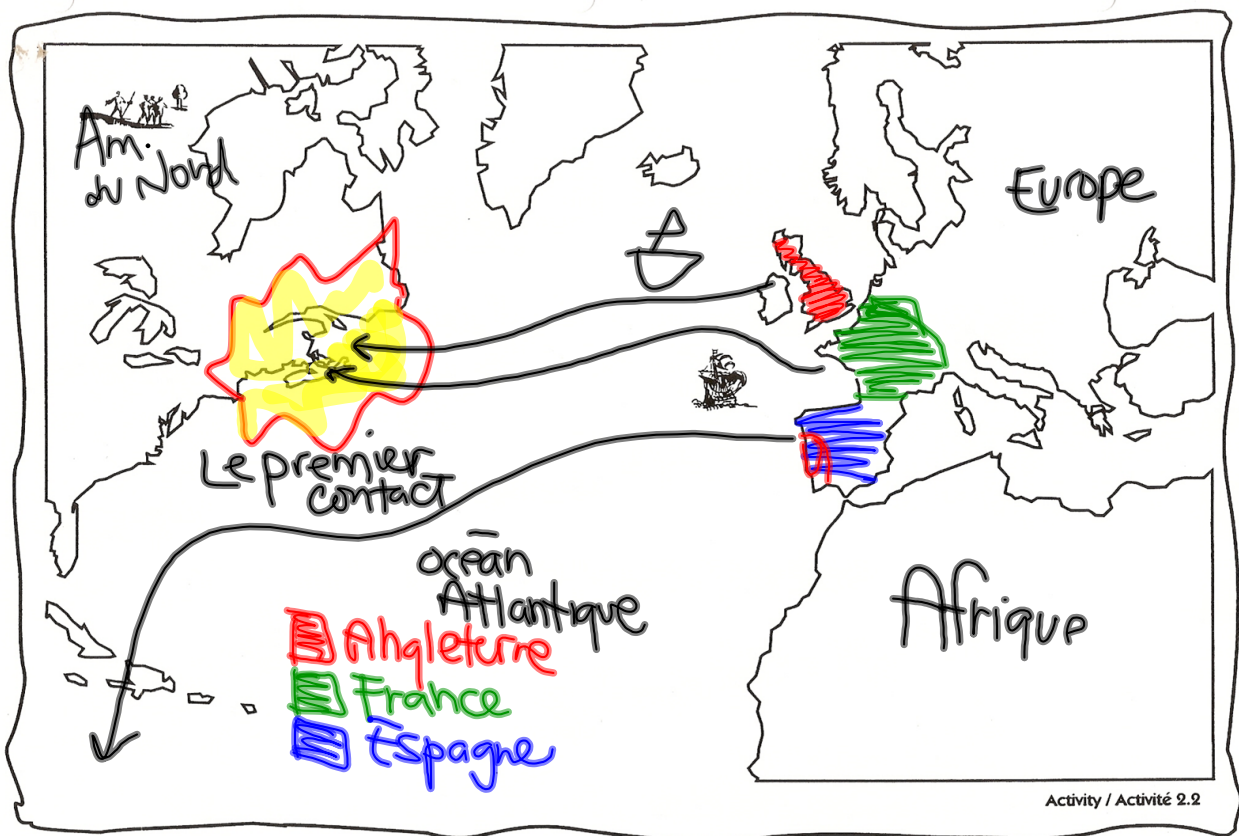 Am.
du Nord
Europe
Le premier
contact
océan
Atlantique
Afrique
Angleterre
France
Espagne
Activity / Activité 2.2